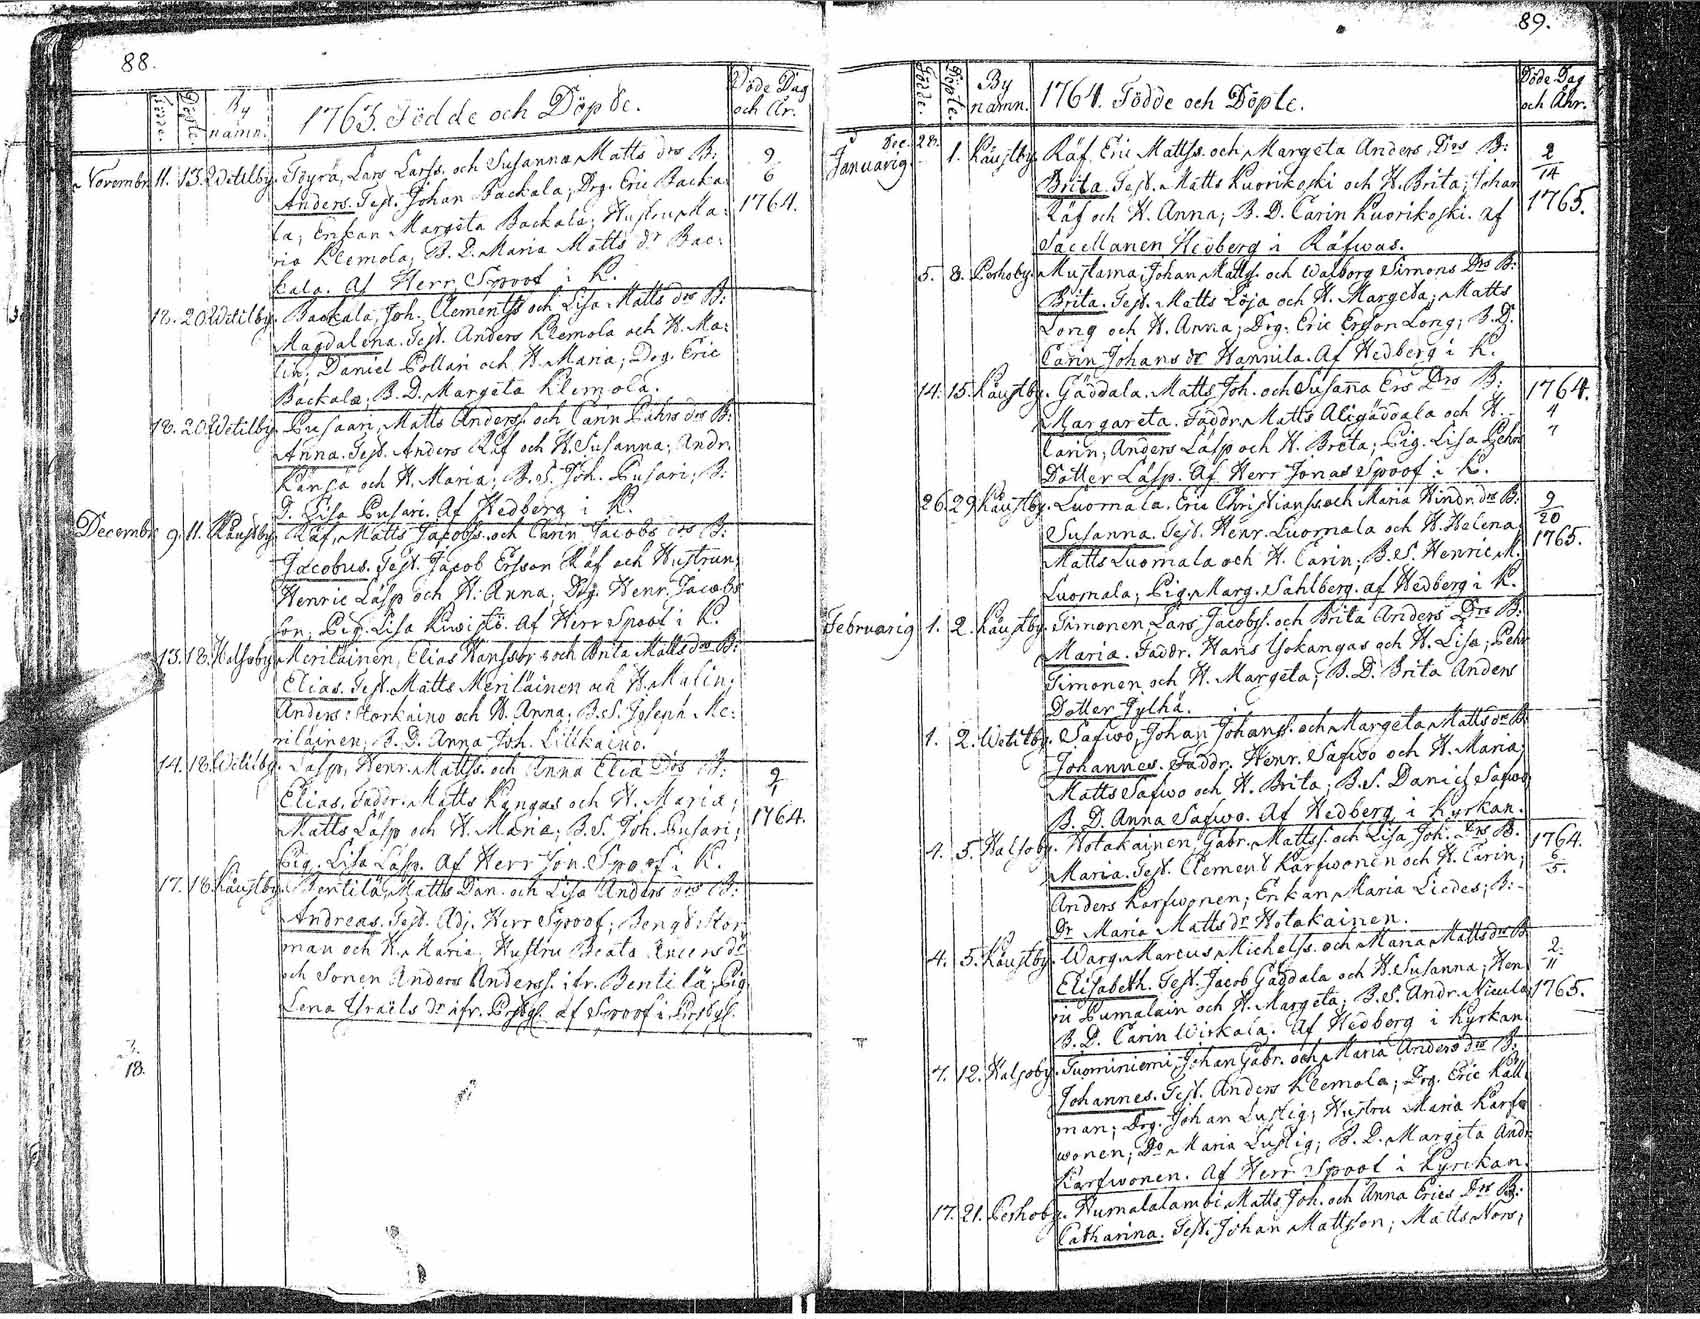 88.
Födde.
Döpte.
By
namn.
1763. Födde och Döpde.
Döde Dag
och År.
Novembr. 11. 13. Wetilby. Töyrä, Lars Larss. och Susanna Matts drs B:
Anders. Test. Johan Backala; Drg. Eric Backa:
la; Enkan Margeta Backala; Hustru Ma:
ria Klemola; B. D. Maria Matts dr Bac:
kala. Af Herr Spoof i K.
9
6
1764.
18. 20. Wetilby. Backala, Joh. Clementss. och Lisa Matts drs B:
Magdalena. Test. Anders Klemola och H. Ma:
lin; Daniel Pollari och H. Maria; Drg. Eric
Backala; B. D. Margeta Klemola.
18. 20. Wetilby. Pusaari, Matts Anderss. och Carin Pährs drs B:
Anna. Test. Anders Räf och H. Susanna; Andr.
Kangas och H. Maria; B. S. Joh. Pusari; B:
D. Lisa Pusari. Af Hedberg i K.
Decembr. 9. 11. Käustby. Räf, Matts Jacobss. och Carin Jacobs drs B:
Jacobus. Test. Jacob Ersson Räf och Hustrun;
Henric Läsp och H. Anna; Drg. Henr. Jacobs
son; Pig. Lisa Kuristö. Af Herr Spoof i K.
13. 18. Halsoby. Meriläinen, Elias Hansson och Brita Matts drs B:
Elias. Test. Matts Meriläinen och H. Malin;
Anders Storkaino och H. Anna; B. S. Joseph Me:
riläinen; B. D. Anna Joh. Lillkaino.
14. 18. Wetilby. Läsp, Henr. Mattss. och Anna Eliæ Drs B:
Elias. Faddr. Matts Kangas och H. Maria;
Matts Läsp och H. Maria; B. S. Joh. Pusari;
Pig. Lisa Läsp. Af Herr Jon. Spoof i K.
9
1
1764.
17. 18. Käustby. Bentilä, Matts Dan. och Lisa Anders drs B:
Andreas. Test. Adj. Herr Spoof; Bengt Stor
man och H. Maria; Hustru Beata Anders dr
och Sonen Anders Anderss. ifr. Bentilä; Pig.
Lena Israels dr ifr. Prsbgl. af Spoof i Prsbgl.
3.
18.
89.
Födde.
Döpte.
By
namn.
1764. Födde och Döpte.
Döde Dag
och Åhr.
Januarig. Dec. 28. 1. Käustby. Räf, Eric Mattss. och Margeta Anders Drs B:
Brita. Test. Matts Kuorikoski och H. Brita; Johan
Räf och H. Anna; B. D. Carin Kuorikoski. af
Sacellanen Hedberg i Räfwas.
2
14
1765.
5. 8. Perhoby. Mustama, Johan Mattss. och Walborg Simons Drs B:
Brita. Test. Matts Löja och H. Margeta; Matts
Long och H. Anna; Drg. Eric Ersson Long; B. D.
Carin Johans dr Hannila. Af Hedberg i K.
14. 15. Käustby. Gäddala. Matts Joh. och Susanna Ers Drs B:
Margareta. Faddr. Matts Aligäddala och H.
Carin; Anders Läsp och H. Brita; Pig. Lisa Pehrs
Dotter Läsp. Af Herr Jonas Spoof i K.
1764.
4
7
26. 29. Käustby. Luomala. Eric Christianss. och Maria Hindr. drs B:
Susanna. Test. Henr. Luomala och H. Helena;
Matts Luomala och H. Carin; B. S. Henric M.
Luomala; Pig. Marg. Sahlberg. af Hedberg i K.
9
20
1765.
Februarig. 1. 2. Käustby. Timonen, Lars Jacobss. och Brita Anders Drs B:
Maria. Faddr. Hans Isokangas och H. Lisa; Pehr
Timonen och H. Margeta; B. D. Brita Anders
Dotter Jylhä.
1. 2. Wetilby. Safwo, Johan Johanss. och Margeta Matts dr B:
Johannes. Faddr. Henr. Safwo och H. Maria;
Matts Safwo och H. Brita; B. S. Daniel Safwo;
B. D. Anna Safwo. Af Hedberg i Kyrkan.
4. 5. Halsoby. Hotakainen, Gabr. Mattss. och Lisa Joh. Drs B.
Maria. Test. Clement Karfwonen och H. Carin;
Anders Karfwonen; Enkan Maria Liedes; B:
Dr Maria Matts dr Hotakainen.
1764.
6
5.
4. 5. Käustby. Warg, Marcus Michelss. och Maria Matts drs B
Elisabeth. Test. Jacob Gäddala och H. Susanna; Hen
ric Pumalain och H. Margeta; B. S. Andr. Nicula;
B. D. Carin Wirkala. Af Hedborg i Kyrkan.
2
11
1765.
7. 12. Halsoby. Tuominiemi, Johan Gabr. och Maria Anders drs B:
Johannes. Test. Anders Klemola; Drg. Eric Käll
man; Drg. Johan Lustig; Hustru Maria Karf
wonen; Do Maria Lustig; B. D. Margeta Andr.
Karfwonen. Af Herr Spoof i Kyrkan.
17. 21. Perhoby. Humalalambi Matts Joh. och Anna Erics Drs B:
Catharina. Test. Johan Mattsson; Matts Nors;